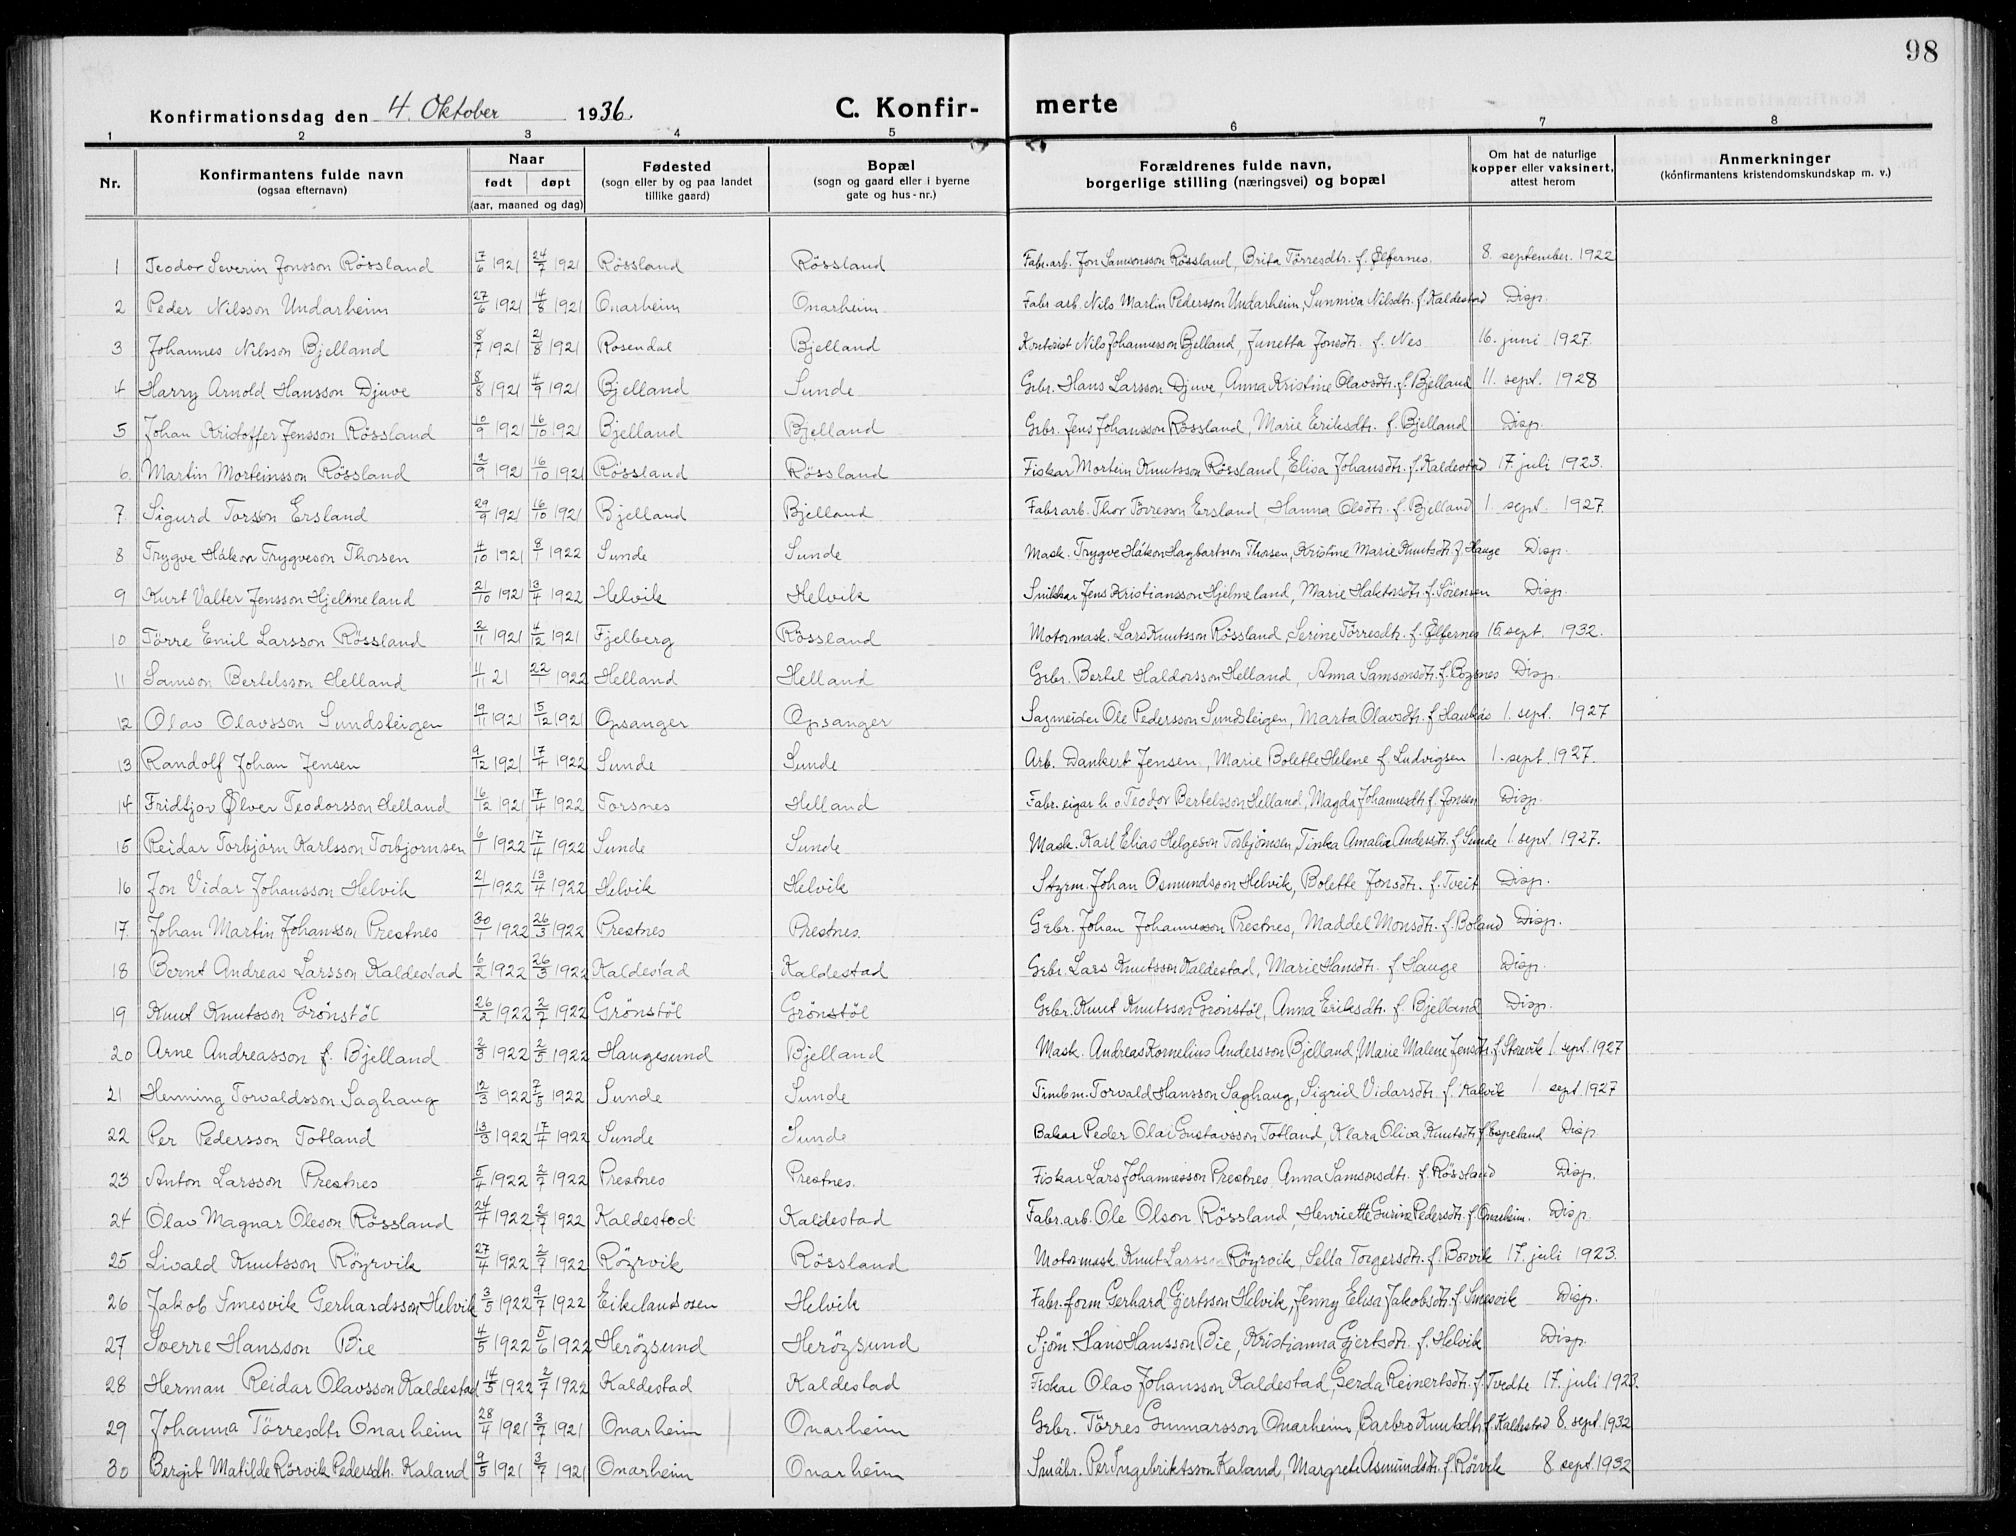 98
Konfirmationsdag den 4. Oktober 1936. C. Konfir- merte
1 2 3 4 5 6 7 8
Nr. Konfirmantens fulde navn (ogsaa efternavn) Naar født døpt (aar, maaned og dag) Fødested (sogn eller by og paa landet tillike gaard) Bopæl (sogn og gaard eller i byerne gate og hus-nr.) Forældrenes fulde navn, borgerlige stilling (næringsvei) og bopæl Om hat de naturlige kopper eller vaksinert, attest herom Anmerkninger (konfirmantens kristendomskundskap m. v.)
1 Teodor Severin Jonsson Rössland 17/6 1921 24/7 1921 Rössland Rössland Fabr.arb. Jon Samsonsson Rössland, Brita Törresdtr. f. Ølfernes. 8. september. 1922
2 Peder Nilsson Undarheim 27/6 1921 14/8 1921 Onarheim Onarheim Fabr arb. Nils Martin Pedersson Undarheim, Sunniva Nilsdtr. f. Kaldestad Disp.
3 Johannes Nilsson Bjelland 8/7 1921 21/8 1921 Rosendal Bjelland Kontorist Nils Johannesson Bjelland, Junetta Jonsdtr. f. Nes 16. juni 1927.
4 Harry Arnold Hansson Djuve 8/8 1921 4/9 1921 Bjelland Sunde Grbr. Hans Larsson Djuve, Anna Kristine Olavsdtr. f. Bjelland 11. sept. 1928
5 Johan Kristoffer Jensson Rössland 10/9 1921 16/10 1921 Bjelland Bjelland Grbr. Jens Johansson Rössland, Marie Eriksdtr. f. Bjelland Disp.
6. Martin Morteinsson Rössland 12/9 1921 16/10 1921 Rössland Rössland Fiskar Mortein Knutsson Rössland, Elisa Johansdtr. f. Kaldestad 17. juli 1923.
7 Sigurd Torsson Ersland 29/9 1921 16/10 1921 Bjelland Bjelland Fabr.arb. Thor Törresson Ersland, Hanna Olsdtr. f. Bjelland 1. sept. 1927.
8 Trygve Håkon Trygveson Thorsen 4/10 1921 8/1 1922 Sunde Sunde Mask. Trygve Håkon Hagbartsson Thorsen, Kristine Marie Knutsdtr. f. Hauge Disp.
9 Kurt Valter Jensson Hjelmeland 21/10 1921 13/4 1922 Helvik Helvik Snikkar Jens Kristiansson Hjelmeland, Marie Haktorsdtr. f. Sörensen Disp.
10 Törre Emil Larsson Rössland 2/11 1921 4/12 1921 Fjelberg Rössland Motormask. Lars Knutsson Rössland, Serine Törresdtr. f. Ølfernes 15 sept. 1932.
11 Samson Bertelsson Helland 4/11 21 22/1 1922 Helland Helland Grbr. Bertel Haldorsson Helland, Anna Samsonsdtr. f. Bogsnes Disp.
12 Olav Olavsson Sundsteigen 19/11 1921 15/12 1921 Opsanger Opsanger Sagmeister Ole Pedersson Sundsteigen, Marta Olavsdtr. f. Haukås 1. sept. 1927
13 Randolf Johan Jensen 9/12 1921 17/4 1922 Sunde Sunde Arb. Dankert Jensen, Marie Bolette Helene f. Ludvigsen 1. sept. 1927.
14 Fridtjov Ølver Teodorsson Helland 16/12 1921 17/4 1922 Torsnes Helland Fabr. eigar h o Teodor Bertelsson Helland, Magda Johannesdtr. f. Jonsen Disp.
15 Reidar Torbjörn Karlsson Torbjornsen 6/1 1922 17/4 1922 Sunde Sunde Mask. Karl Elias Helgeson Torbjörnsen, Tinka Amalie Andersdtr. f. Sunde 1. sept. 1927.
16 Jon Vidar Johansson Helvik 21/1 1922 13/4 1922 Helvik Helvik Styrm. Johan Osmundsson Helvik, Bolette Jonsdtr. f. Tveit Disp.
17. Johan Martin Johansson Prestnes 30/1 1922 26/3 1922 Prestnes Prestnes. Grbr. Johan Johannesson Prestnes, Maddel Monsdtr. f. Boland Disp.
18 Bernt Andreas Larsson Kaldestad 6/2 1922 26/3 1922 Kaldestad Kaldestad Grbr. Lars Knutsson Kaldestad, Marie Hansdtr. f. Hauge Disp.
19 Knut Knutsson Grönstöl 26/2 1922 2/7 1922 Grönstöl Grönstöl Grbr. Knut Knutsson Grönstöl, Anna Eriksdtr. f. Bjelland Disp.
20 Arne Andreasson f. Bjelland 2/3 1922 2/5 1922 Haugesund Bjelland Mask. Andreas Kornelius Andersson Bjelland, Marie Malene Jensdtr. f. Storevik 1. sept. 1927
21 Henning Torvaldsson Saghaug 12/3 1922 7/5 1922 Sunde Sunde Timbm. Torvald Hansson Saghaug, Sigrid Vidarsdtr. f. Kalvik 1. sept 1927
22 Per Pedersson Totland 13/3 1922 17/4 1922 Sunde Sunde Bakar Peder Olai Gustavsson Totland, Klara Oliva Knutsdtr. f. Espeland Disp.
23 Anton Larsson Prestnes 5/4 1922 2/7 1922 Prestnes Prestnes. Fiskar Lars Johannesson Prestnes Anna Samsonsdtr. f. Rössland Disp.
24 Olav Magnar Oleson Rössland 24/4 1922 2/7 1922 Kaldestad Kaldestad Fabr.arb. Ole Olson Rössland, Henriette Gurine Pedersdtr. f. Onarheim. Disp.
25 Livald Knutsson Röyrvik 27/4 1922 2/7 1922 Röyrvik Rössland Motormask. Knut Larsson Röyrvik Sella Torgersdtr. f. Borvik 17. juli 1923.
26 Jakob Smesvik Gerhardsson Helvik 3/5 1922 9/7 1922 Eikelandsosen Helvik Fabr.form Gerhard Gjertsson Helvik, Jenny Elisa Jakobsdtr. f. Smesvik Disp.
27 Sverre Hansson Bie 4/5 1922 5/6 1922 Heröysund Heröysund Sjöm Hans Hansson Bie, Kristianna Gjertsdtr. f. Helvik Disp.
28 Herman Reidar Olavsson Kaldestad 14/5 1922 2/7 1922 Kaldestad Kaldestad Fiskar Olav Johansson Kaldestad, Gerda Reinertsdtr. f. Tvedte 17. juli 1923.
29 Johanna Törresdtr Onarheim 28/4 1921 3/7 1921 Onarheim Onarheim Grbr. Törres Gunnarsson Onarheim, Barbro Knutsdtr. f. Kaldestad 8. sept. 1932
30 Bergit Matilde Rörvik Pedersdtr. Kaland 9/5 1921 3/7 1921 Onarheim Onarheim Småbr. Per Ingebriktsson Kaland, Margrete Asmundsdtr. f. Rörvik 8 sept. 1932